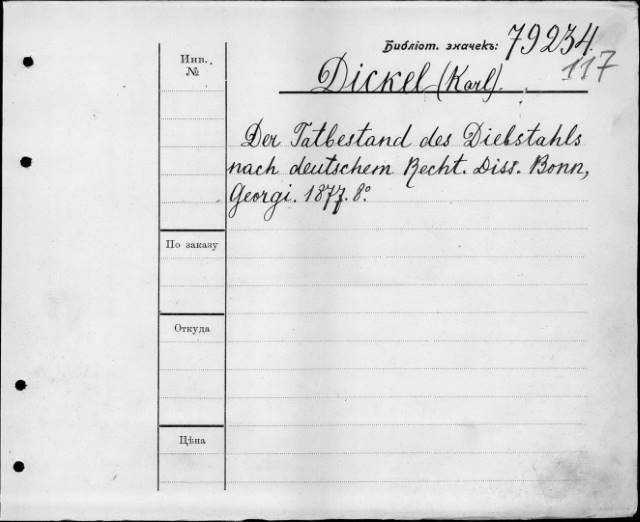 Библіот. значекъ: 79234.
117
Инв.
№
Dickel (Karl).
Der Tatbestand des Diebstahls
nach deutschem Recht. Diss. Bonn,
Georgi. 1877. 8°.
По заказу
Откуда
Цѣна